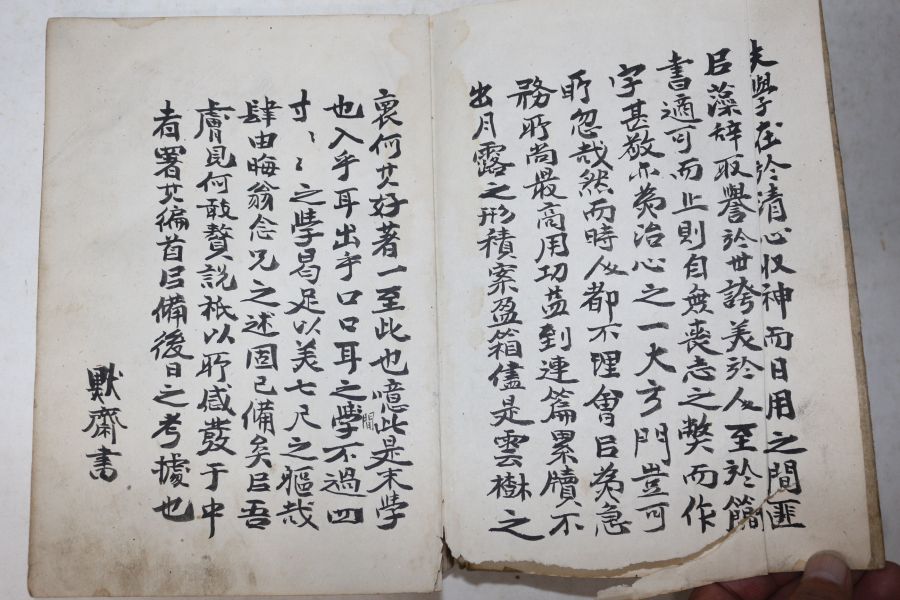 夫學在於清心収神而日用之間匪
㠯藻辞取譽於世誇美於人至於簡
書適可而止則自無喪志之弊而作
字甚敬亦為治心之一大方門豈可
所忽哉然而時人都不理會㠯為急
務所尚最高用功益到連篇累牘不
出月露之形積案盈箱儘是雲樹之
裒何其好著一至此也噫此是末學
也入乎耳出乎口口耳之間學不過四
寸〻〻之學曷足以美七尺之軀哉
肆由晦翁念兄之述固已備矣㠯吾
膚見何敢贅説秪以所感發于中
者署其編首㠯備後日之考據也
默齋書